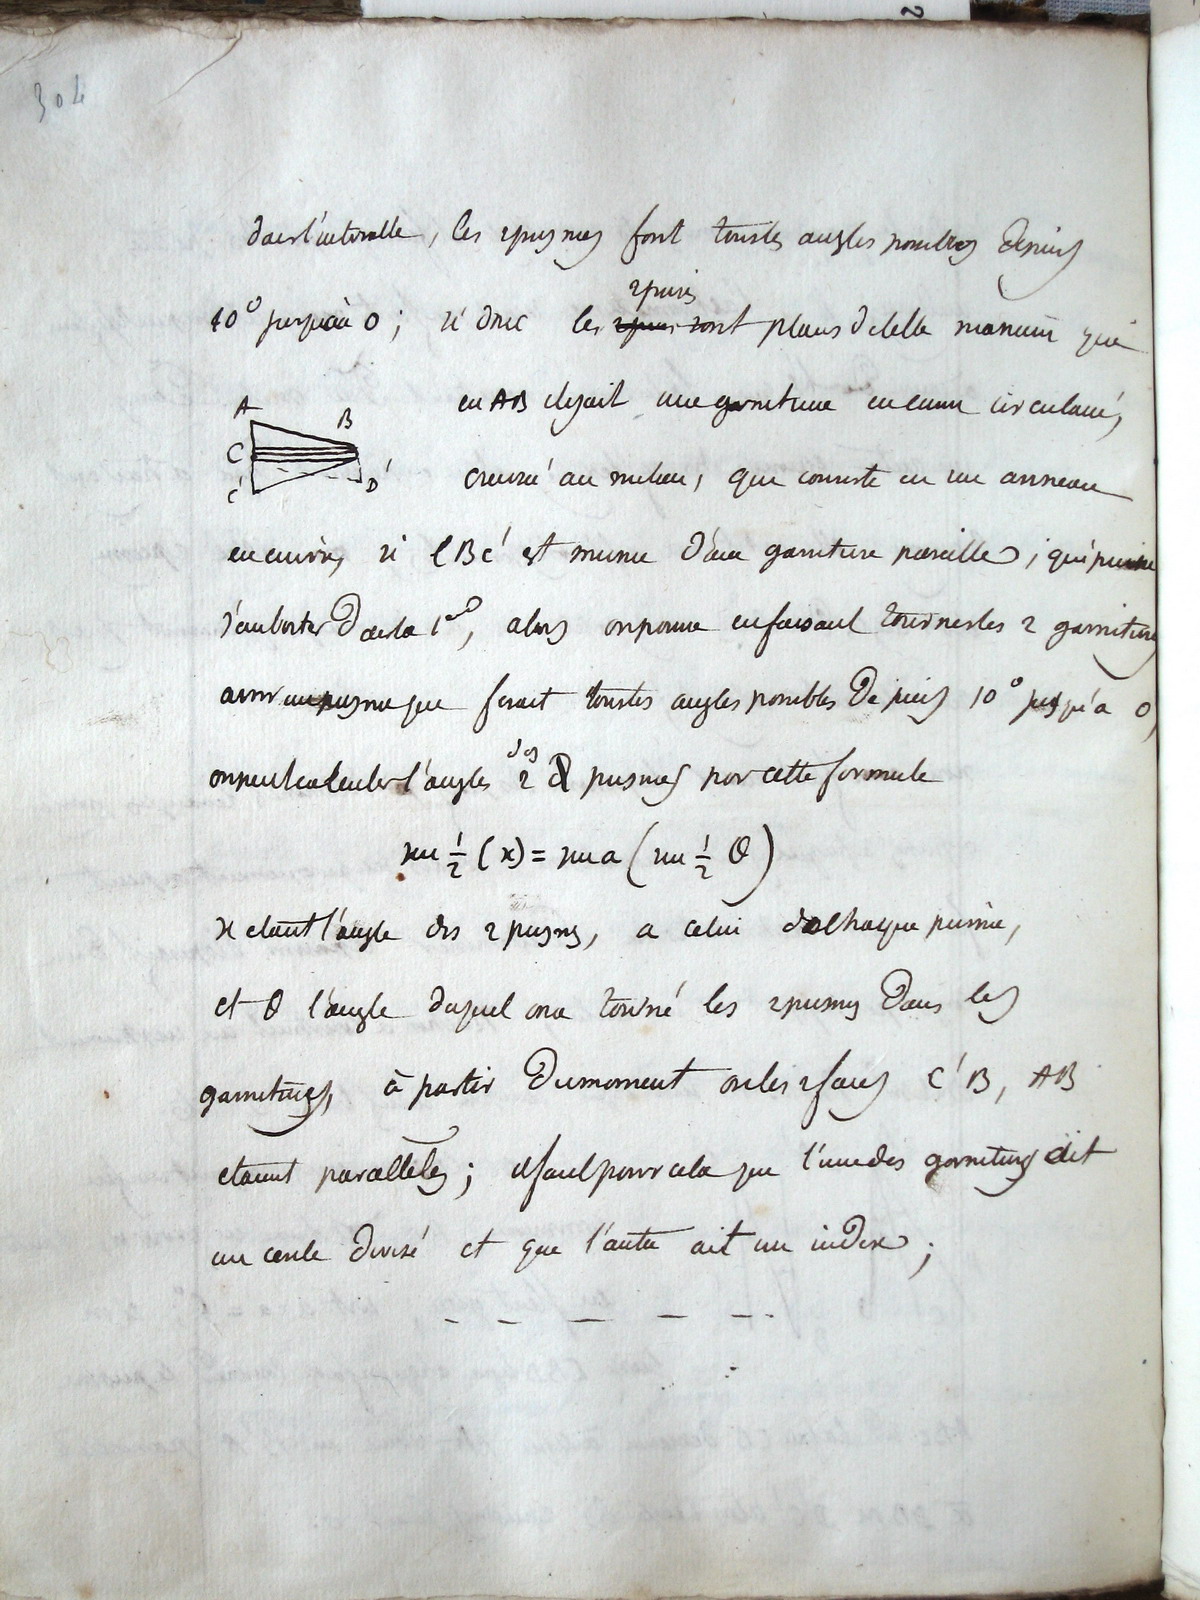 304
dans l'intervalle, les 2 prismes font tous les angles possibles depuis
2 prismes
10° jusqu'à 0; si donc les sont placés de telle maniere que
A B C C' D'
en AB il y ait une garniture en cuivre circulaire,
creusée au milieu, qui consiste en un anneau
en cuivre, si CBC' est munie d'une garniture pareille, qui puisse
s'emboiter dans la 1ere, alors on pourra en faisant tourner les 2 garnitures
avoir un prisme qui ferait tous les angles possibles depuis 10° jusqu'à 0,
on peut calculer l'angles des 2 prismes par cette formule
sin ½ (x) = sin a (sin ½ θ)
x etant l'angle des 2 prismes, a celui de chaque prisme,
et θ l'angle duquel on a tourné les 2 prismes dans les
garnitures, à partir du moment ou les 2 faces C'B, AB
etaient paralleles; il faut pour cela que l'une des garnitures ait
un cercle divisé et que l'autre ait un index;